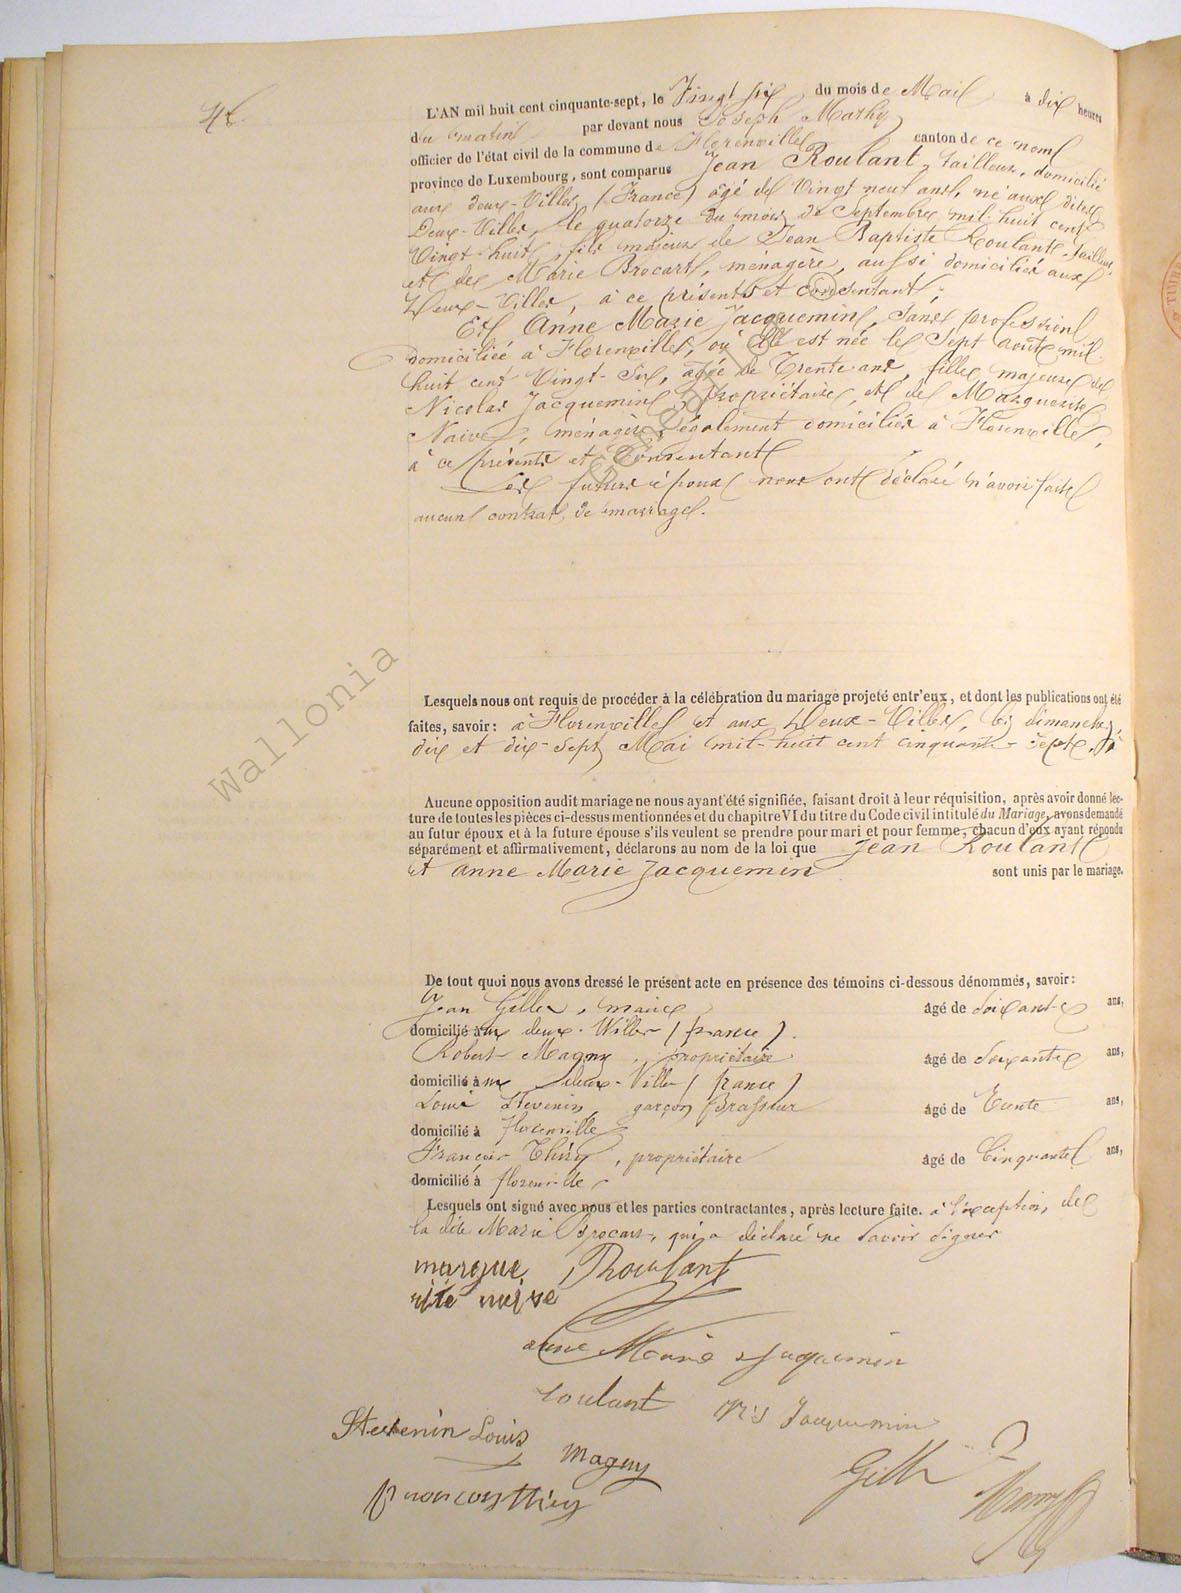 L'AN mil huit cent cinquante-sept, le Vingt six du mois de Mai à dix heures
du matin par devant nous Joseph Mathy
officier de l'état civil de la commune de Florenville canton de ce nom
province de Luxembourg, sont comparus Jean Roulant, tailleur, domicilié
aux deux-Villes (France) âgé de Vingt neuf ans, né aux dites
Deux-Villes, le quatorze du mois de Septembre mil huit cent
Vingt-huit, fils majeur de Jean Baptiste Roulant, tailleur,
et de Marie Brocart, ménagère, aussi domiciliés aux
Deux-Villes, à ce présents et consentant;
Et Anne Marie Jacquemin, sans profession
domiciliée à Florenville, où elle est née le Sept août mil
huit cent Vingt-Six, agée de Trente ans, fille majeure de
Nicolas Jacquemin, propriétaire, et de Marguerite
Naive, ménagère, également domiciliés à Florenville,
à ce présents et Consentant
Les futurs époux nous ont déclaré n'avoir fait
aucun contrat de mariage.
Lesquels nous ont requis de procéder à la célébration du mariage projeté entr'eux, et dont les publications ont été
faites, savoir: à Florenville et aux Deux-Villes, les dimanches
dix et dix-sept Mai mil-huit cent cinquante-sept
Aucune opposition audit mariage ne nous ayant été signifiée, faisant droit à leur réquisition, après avoir donné lec-
ture de toutes les pièces ci-dessus mentionnées et du chapitre VI du titre du Code civil intitulé du Mariage, avons demandé
au futur époux et à la future épouse s'ils veulent se prendre pour mari et pour femme, chacun d'eux ayant répondu
séparément et affirmativement, déclarons au nom de la loi que Jean Roulant
et Anne Marie Jacquemin sont unis par le mariage.
De tout quoi nous avons dressé le présent acte en présence des témoins ci-dessous dénommés, savoir:
Jean Gilles, maire âgé de Soixante ans,
domicilié aux deux-Villes (france).
Robert Magny, propriétaire âgé de Soixante ans,
domicilié aux deux-Villes (france)
Louis Stevenin, garçon Brasseur âgé de Trente ans,
domicilié à florenville
François Thiry, propriétaire âgé de Cinquante ans,
domicilié à florenville
Lesquels ont signé avec nous et les parties contractantes, après lecture faite. à l'exception de
la dite Marie Brocart, qui a déclaré ne savoir signer
margue Roulant
rite neive
anne Marie Jacquemin
roulant Jacquemin
Stevenin Louis
Magny
Gille
francois thiry
Wallonia